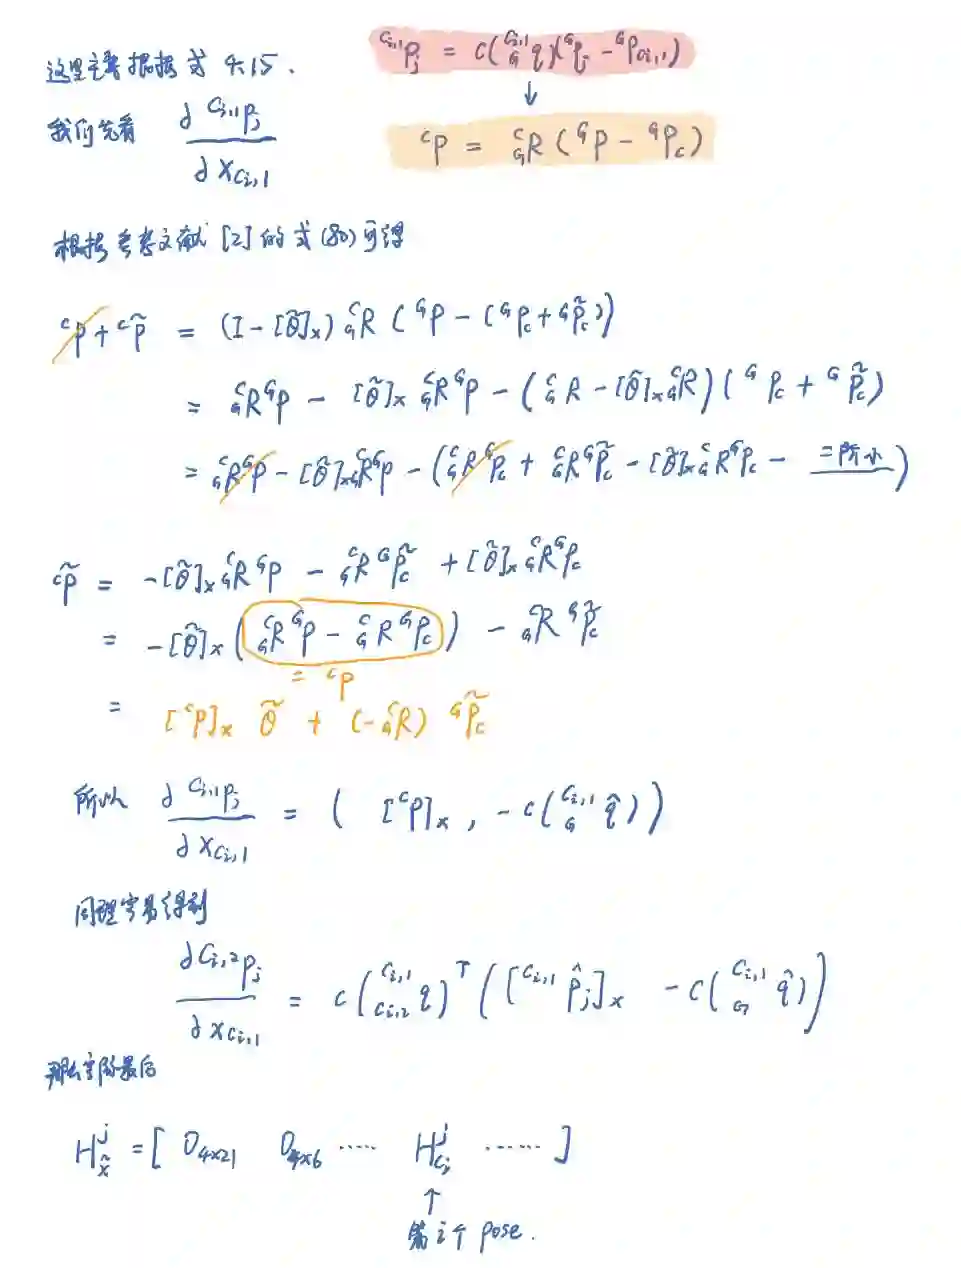 这里主要根据式 4.15.
^{C_{i,1}}p_j = C(^{C_{i,1}}_G q)(^G p_j - ^G p_{C_{i,1}})
↓
^C P = ^C_G R (^G P - ^G P_c)
我们先看 ∂ ^{C_{i,1}}p_j / ∂ X_{C_{i,1}}
根据参考文献 [2] 的 式(80) 可得
^C p + ^C p̃ = (I - [θ̃]_×) ^C_G R (^G P - (^G P_c + ^G P̃_c))
= ^C_G R ^G P - [θ̃]_× ^C_G R ^G P - (^C_G R - [θ̃]_× ^C_G R)(^G P_c + ^G P̃_c)
= ^C_G R ^G P - [θ̃]_× ^C_G R ^G P - (^C_G R ^G P_c + ^C_G R ^G P̃_c - [θ̃]_× ^C_G R ^G P_c - 二阶小)
^C p̃ = -[θ̃]_× ^C_G R ^G P - ^C_G R ^G P̃_c + [θ̃]_× ^C_G R ^G P_c
= -[θ̃]_× (^C_G R ^G P - ^C_G R ^G P_c) - ^C_G R ^G P̃_c
= ^C P
= [^C P]_× θ̃ + (-^C_G R) ^G P̃_c
所以 ∂ ^{C_{i,1}}p_j / ∂ X_{C_{i,1}} = ( [^C P]_× , - C(^{C_{i,1}}_G q̂) )
同理容易得到
∂ ^{C_{i,2}}p_j / ∂ x_{C_{i,1}} = C(^{C_{i,1}}_{C_{i,2}} q)^T ([^{C_{i,1}} p̂_j]_× - C(^{C_{i,1}}_G q̂))
那么实际最后
H^j_x̃ = [ 0_{4×21} 0_{4×6} ····· H^j_{C_i} ······ ]
↑
第 i 个 pose.